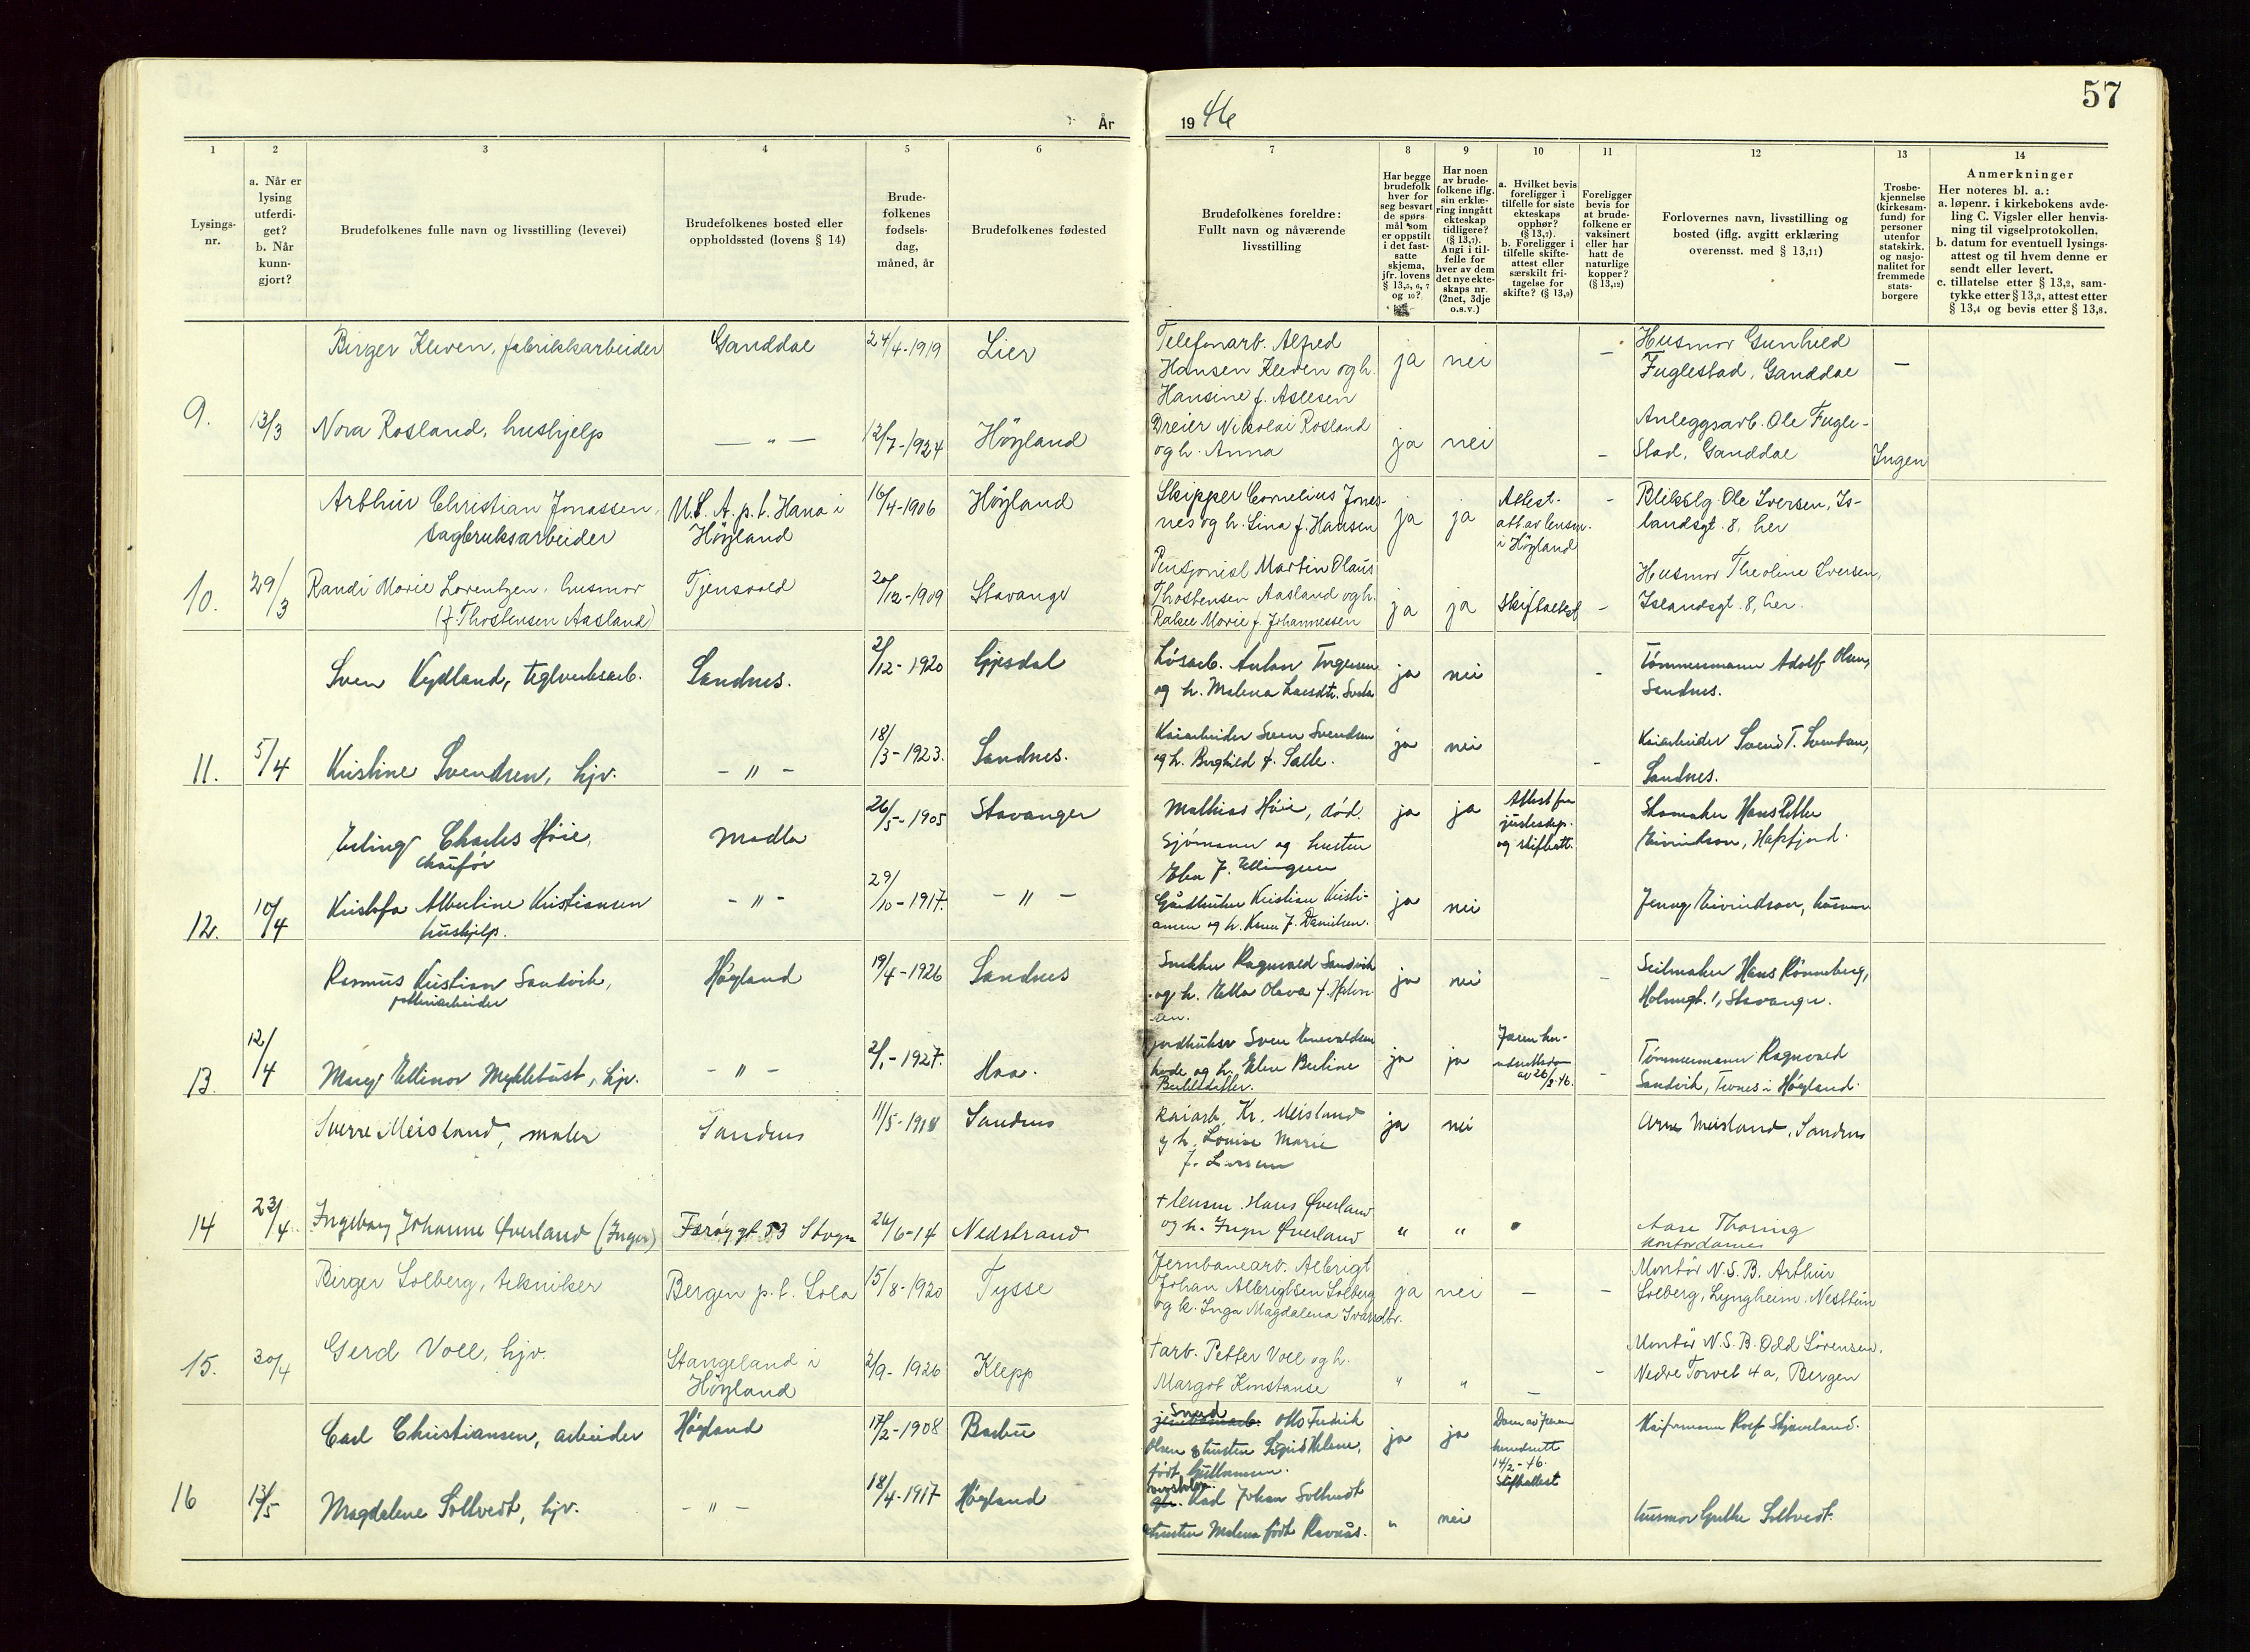 57
År 1946
1
2
3
4
5
6
7
8
9
10
11
12
13
14
Lysings-
nr.
a. Når er
lysing
utferdi-
get?
b. Når
kunn-
gjort?
Brudefolkenes fulle navn og livsstilling (levevei)
Brudefolkenes bosted eller
oppholdssted (lovens § 14)
Brude-
folkenes
fødsels-
dag,
måned, år
Brudefolkenes fødested
Brudefolkenes foreldre:
Fullt navn og nåværende
livsstilling
Har begge
brudefolk
hver for
seg besvart
de spørs-
mål som
er oppstilt
i det fast-
satte
skjema,
jfr. lovens
§ 13,5, 6, 7
og 10?
Har noen
av brude-
folkene iflg.
sin erklæ-
ring inngått
ekteskap
tidligere?
(§ 13,7).
Angi i til-
felle for
hver av dem
det nye ekte-
skaps nr.
(2net, 3dje
o.s.v.)
a. Hvilket bevis
foreligger i
tilfelle for siste
ekteskaps
opphør?
(§ 13,7).
b. Foreligger i
tilfelle skifte-
attest eller
særskilt fri-
tagelse for
skifte? (§ 13,9)
Foreligger
bevis for
at brude-
folkene er
vaksinert
eller har
hatt de
naturlige
kopper?
(§ 13,12)
Forlovernes navn, livsstilling og
bosted (iflg. avgitt erklæring
overensst. med § 13,11)
Trosbe-
kjennelse
(kirkesam-
fund) for
personer
utenfor
statskirk.
og nasjo-
nalitet for
fremmede
stats-
borgere
Anmerkninger
Her noteres bl. a.:
a. løpenr. i kirkebokens avde-
ling C. Vigsler eller henvis-
ning til vigselprotokollen.
b. datum for eventuell lysings-
attest og til hvem denne er
sendt eller levert.
c. tillatelse etter § 13,2, sam-
tykke etter § 13,3, attest etter
§ 13,4 og bevis etter § 13,8.
Birger Kleven, fabrikkarbeider
Ganddal
24/4-1919
Lier
Telefonarb. Alfred
Hansen Kleven og h.
Hansine f. Aslesen
ja
nei
–
Husmor Gunhild
Fuglestad, Ganddal
–
9.
13/3
Nora Rosland, hushjelp
— " —
12/7-1924
Höyland
Dreier Nikolai Rosland
og h. Anna
ja
nei
–
Anleggsarb. Ole Fugle-
stad, Ganddal
Ingen
Arthur Christian Jonassen,
sagbruksarbeider
U.S.A. p.t. Hana i
Höyland
16/4-1906
Höyland
Skipper Cornelius Jones-
nes og h. Lina f. Hansen
ja
ja
Attest.
att av lensm.
i Höyland
–
Blikslg. Ole Iversen, Is-
landsgt. 8, her
10.
29/3
Randi Marie Lorentzen, husmor
(f. Thostensen Aasland)
Tjensvold
20/12-1909
Stavanger
Pensjonist Martin Olaus
Thostensen Aasland og h.
Rakel Marie f. Johannessen
ja
ja
Skifteattest
–
Husmor Theoline Iversen,
Islandsgt. 8, her.
Sven Kydland, teglverksarb.
Sandnes.
2/12-1920
Gjesdal
Løsarb. Anton Torgersen
og h. Malena Larsdtr.
ja
nei
–
Tømmermann Adolf Olsen,
Sandnes.
11.
5/4
Kristine Svendsen, hjv.
– " –
18/3-1923.
Sandnes.
Kaiarbeider Sven Svendsen
og h. Borghild f. Salte.
ja
nei
–
Kaiarbeider Svend T. Svendsen,
Sandnes.
Erling Charles Höie,
chaufør
Madla
26/5-1905
Stavanger
Mathias Höie, död.
Sjömann og hustru
Elen f. Ellingsen
ja
ja
Attest fra
justisdep.
og skifteatt.
Skomaker Hans Petter
Eivindson, Hafrsfjord.
12.
10/4
Kristofa Albertine Kristiansen
hushjelp.
– " –
29/10-1917.
– " –
Gårdbruker Kristian Kristi-
ansen og h. Karen f. Danielsen.
ja
nei
Jenny Eivindson, husmor
Rasmus Kristian Sandvik,
potteriarbeider
Høyland
19/4-1926
Sandnes
Snekker Ragnvald Sandvik
og h. Etta Olava f. Halvor-
sen.
ja
nei
–
Seilmaker Hans Rönneberg,
Holmegt. 1, Stavanger.
13.
12/4
Mary Ellinor Myklebust, hjv.
– " –
2/1-1927.
Haa.
ja
ja
Jæren her-
redsrettsdom
av 26/2.46.
–
Tømmermann Ragnvald
Sandvik, Trones i Høyland.
Sverre Meisland, maler
Sandnes
11/5-1918
Sandnes
Kaiarb. Kr. Meisland
og h. Louise Marie
f. Larsen
ja
nei
Arne Meisland, Sandnes
14
23/4.
Ingeborg Johanne Qverland (Inger)
Færøygt 53 Stvgr
26/6-14
Nedstrand
+ lensm. Hans Qverland
og h. Inger Qverland
"
"
Aase Thoring
kontordame
Birger Solberg, tekniker
Bergen p.t. Sola
15/8-1920
Tysse
Jernbanearb. Albrigt
Johan Albrigtsen Solberg
og h. Inga Magdalena Ivarsdtr.
ja
nei
–
–
Montör N.S.B. Arthur
Solberg, Lyngheim, Nesttun
15.
30/4
Gerd Voll, hjv.
Stangeland i
Höyland
2/9-1926
Klepp
+ arb. Petter Voll og h.
Margot Konstanse
"
"
–
–
Montör N.S.B. Odd Sörensen,
Nedre Torvet 4a, Bergen
Carl Christiansen, arbeider
Høyland
17/2-1908
Barbu
Smed
Otto Fredrik
Olsen & hustru Sigrid Helene,
født Guttormsen.
ja
ja
Dom av Jæren
herredsrett
14/2-46.
Skifteattest
Kaiformann Rolf Skjæveland.
16
13/5
Magdalene Soltvedt, hjv.
– " –
18/4-1917
Høyland
Karl Johan Soltvedt
& hustru Malena født Ravnås.
"
nei
husmor Gytte Soltvedt.